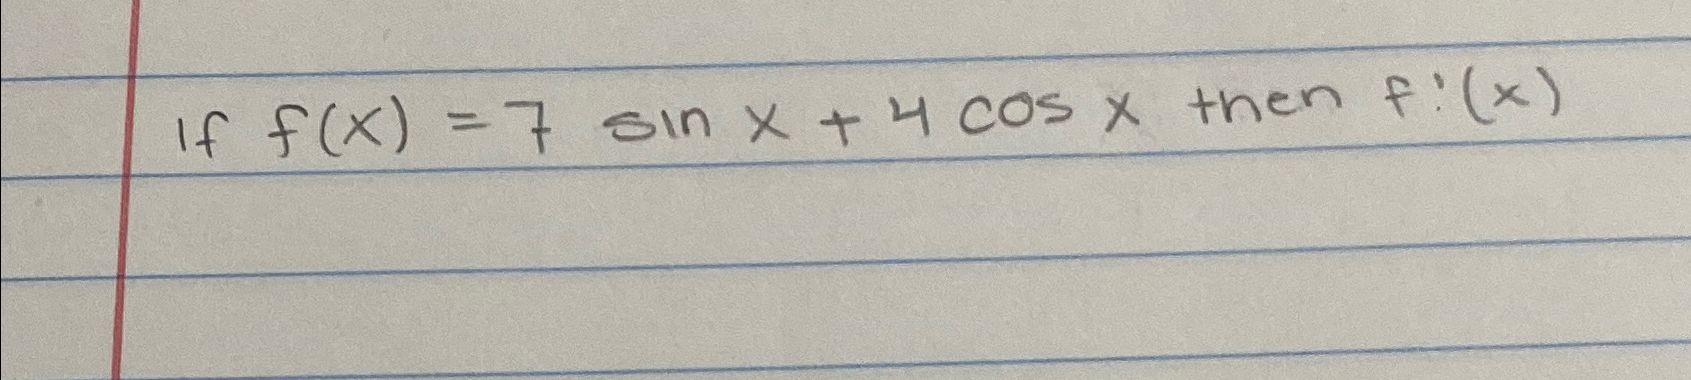 If f(x) = 7 sin x + 4 cos x then f'(x)